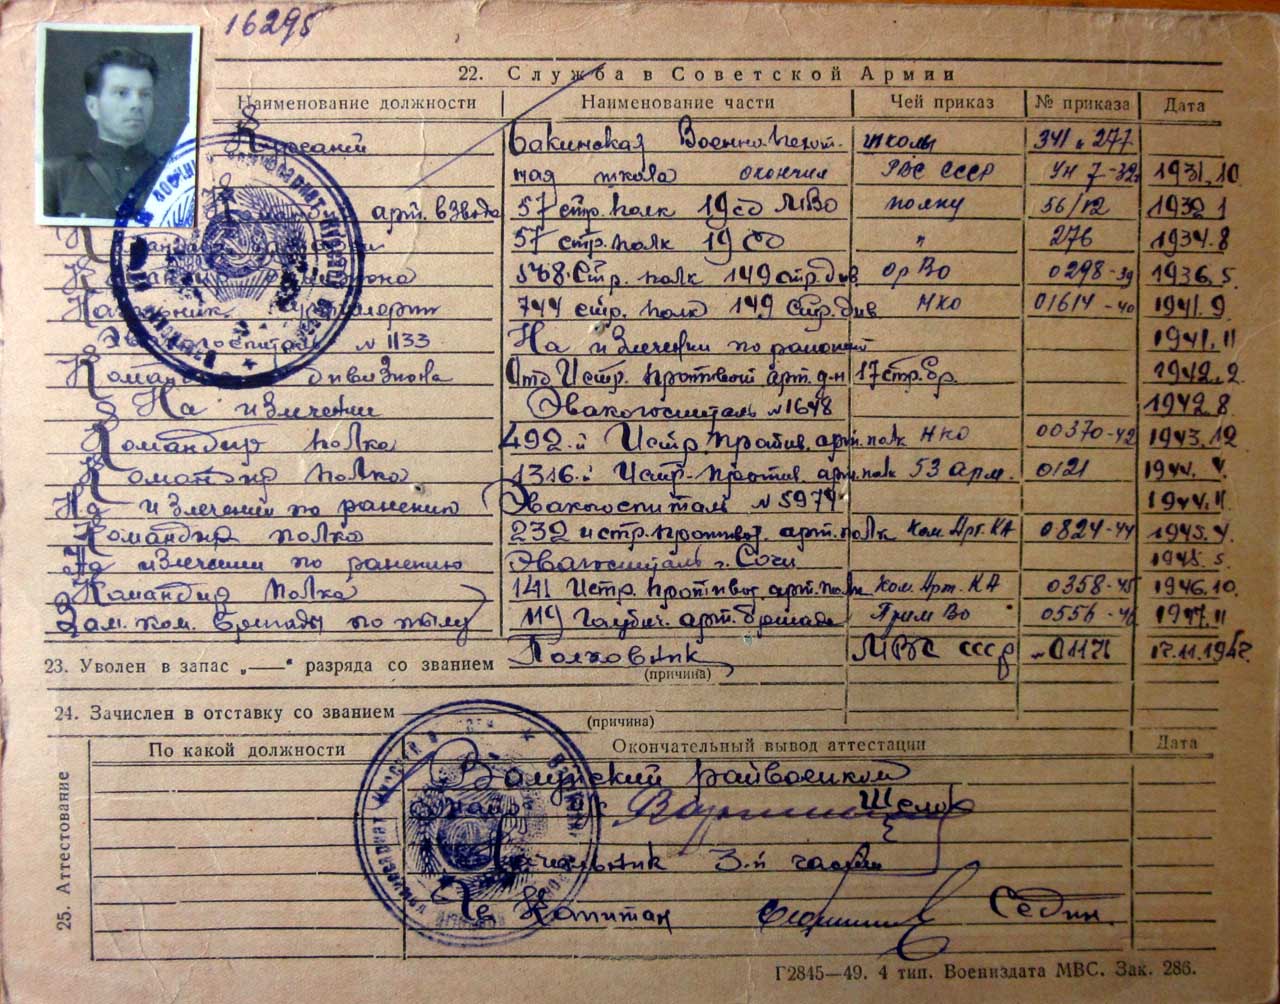 16295
22. Служба в Советской Армии
Наименование должности Наименование части Чей приказ № приказа Дата
Курсант Бакинская Военно-пехот- школы 341 и 277
ная школа окончил РВС СССР 1931.10
арт. взвода 57 стр. полк 19 сд МВО полку 56/12 1932.1
57 стр. полк 19 сд " 276 1934.8
568 Стр. полк 149 стр. див. ОрВО 0298-39 1936.5
Начальник Артиллерии 744 стр. полк 149 Стр. див. НКО 01614-40 1941.9
Эвакогоспиталь N 1133 На излечении по ранению 1941.11
Командир дивизиона Отд Истр. противот арт. д-н 17 стр. бр. 1942.2
На излечении Эвакогоспиталь N 1648 1942.8
Командир полка 492-й Истр. против. арт. полк НКО 00370-42 1943.12
Командир полка 1316-й Истр. против. арт. полк 53 арм. 0121
На излечении по ранению Эвакогоспиталь N 5974 1944.11
Командир полка 232 истр. противот. арт. полк Ком. Арт. КА 0824-44 1945.4
На излечении по ранению Эвакогоспиталь г. Сочи 1945.5
Командир полка 141 Истр. противот. арт. полк Ком. Арт. КА 0358-45 1946.10
Зам. ком. бригады по тылу 119 Гаубич. арт. бригада ПримВО 0556-46 1947.11
23. Уволен в запас „——“ разряда со званием Полковник МВС СССР N 01171
(причина)
24. Зачислен в отставку со званием
(причина)
25. Аттестование
По какой должности Окончательный вывод аттестации Дата
райвоенком
Начальник 3-й части
Капитан Седин
Г2845—49. 4 тип. Воениздата МВС. Зак. 286.